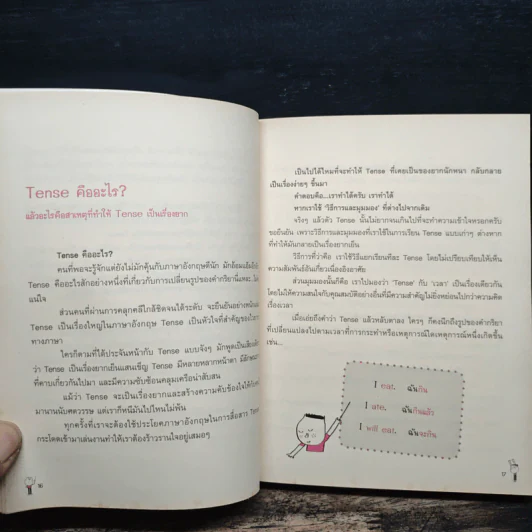 Tense คืออะไร?
แล้วอะไรคือสาเหตุที่ทำให้ Tense เป็นเรื่องยาก
Tense คืออะไร?
คนที่พอจะรู้จักแต่ยังไม่มักคุ้นกับภาษาอังกฤษดีนัก มักอ้อมแอ้มว่า
Tense คืออะไรสักอย่างหนึ่งที่เกี่ยวกับการเปลี่ยนรูปของคำกริยานี่แหละ...ไม่
แน่ใจ
ส่วนคนที่ผ่านการคลุกคลีใกล้ชิดจนได้ระดับ จะยืนยันอย่างหนักแน่น
Tense เป็นเรื่องใหญ่ในภาษาอังกฤษ Tense เป็นหัวใจที่สำคัญของ
ทางภาษา
ใครก็ตามที่ได้ประจันหน้ากับ Tense แบบจังๆ มักพูดเป็นเสียงเดียว
ว่า Tense เป็นเรื่องยากเย็นแสนเข็ญ Tense มีหลายหลากหน้าตา มี
ที่คาบเกี่ยวกันไปมา และมีความซับซ้อนคลุมเครือน่าสับสน
แม้ว่า Tense จะเป็นเรื่องยากและสร้างความคับข้องใจให้กับ
มานานนับศตวรรษ แต่เราก็หนีมันไปไหนไม่พ้น
ทุกครั้งที่เราจะต้องใช้ประโยคภาษาอังกฤษในการสื่อสาร Tense
กระโดดเข้ามาเล่นงานทำให้เราต้องร้าวรานใจอยู่เสมอๆ
16
เป็นไปได้ไหมที่จะทำให้ Tense ที่เคยเป็นของยากนักหนา กลับกลาย
เป็นเรื่องง่ายๆ ขึ้นมา
คำตอบคือ...เราทำได้ครับ เราทำได้
หากเราใช้ 'วิธีการและมุมมอง' ที่ต่างไปจากเดิม
จริงๆ แล้วตัว Tense นั้นไม่ยากจนเกินไปที่จะทำความเข้าใจหรอกครับ
ขอยืนยัน เพราะวิธีการและมุมมองที่เราใช้ในการเรียน Tense แบบเก่าๆ ต่างหาก
ที่ทำให้มันกลายเป็นเรื่องยากเย็น
วิธีการที่ว่าคือ เราใช้วิธีแยกเรียนทีละ Tense โดยไม่เปรียบเทียบให้เห็น
ความสัมพันธ์อันเกี่ยวเนื่องอิงอาศัย
ส่วนมุมมองนั้นก็คือ เราไปมองว่า 'Tense' กับ 'เวลา' เป็นเรื่องเดียวกัน
โดยไม่ให้ความสนใจกับคุณสมบัติอย่างอื่นที่มีความสำคัญไม่ยิ่งหย่อนไปกว่าความคิด
เรื่องเวลา
เมื่อเอ่ยถึงคำว่า Tense แล้วหลับตาลง ใครๆ ก็คงนึกถึงรูปของคำกริยา
ที่เปลี่ยนแปลงไปตามเวลาที่การกระทำหรือเหตุการณ์ใดเหตุการณ์หนึ่งเกิดขึ้น
เช่น...
I eat. ฉันกิน
I ate. ฉันกินแล้ว
I will eat. ฉันจะกิน
17